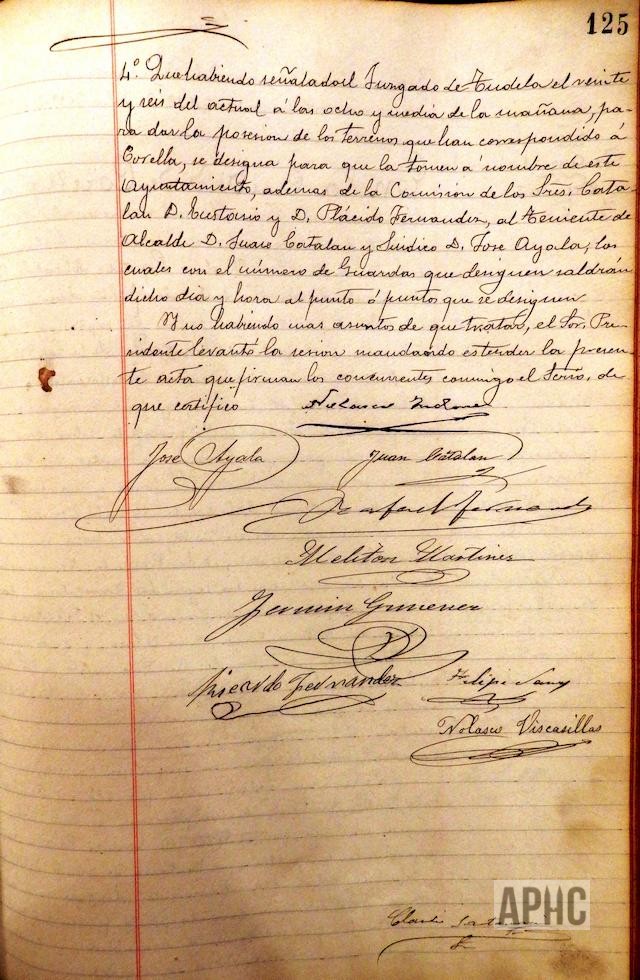 125
4º Que habiendo señalado el Juzgado de Tudela el veinte
y seis del actual á las ocho y media de la mañana, pa-
ra dar la posesion de los terrenos que han correspondido á
Corella, se designa para que la tomen á nombre de este
Ayuntamiento, ademas de la Comision de los Sres. Cata
lan D. Eustasio y D. Plácido Fernandez, al teniente de
Alcalde D. Juan Catalan y Sindico D. José Ayala, los
cuales con el número de Guardas que designen saldrán
dicho dia y hora al punto ó puntos que se designen
Y no habiendo mas asuntos de que tratar, el Sor. Pre-
sidente levantó la sesion mandando estender la presen-
te acta que firman los concurrentes conmigo el Serio, de
que certifico Nolasco
José Ayala Juan Catalan
Rafael Fernandez
Meliton Martinez
Fermin Gimenez
Ricardo Fernandez Felipe Sanz
Nolasco Viscasillas
APHC